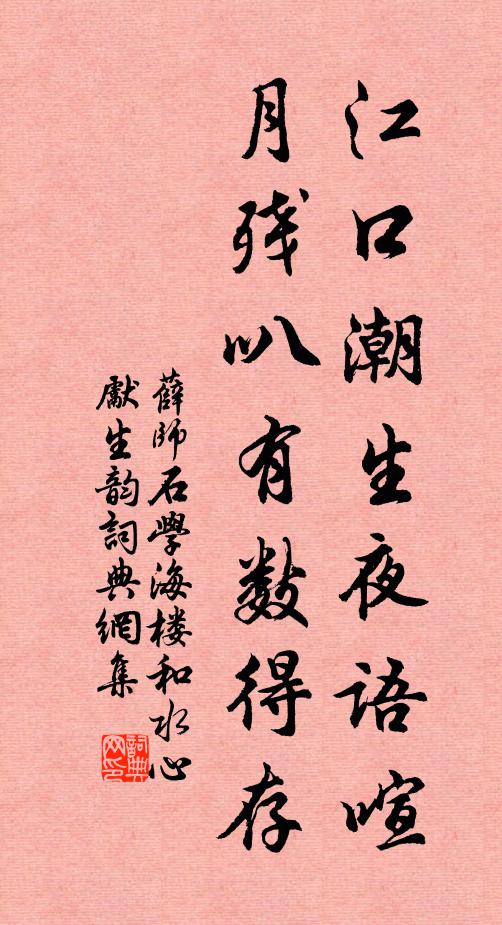 江口潮生夜语喧
月残叭有数得存
薛師石學海楼和水心
獻生韵詞典網集
詞典网印